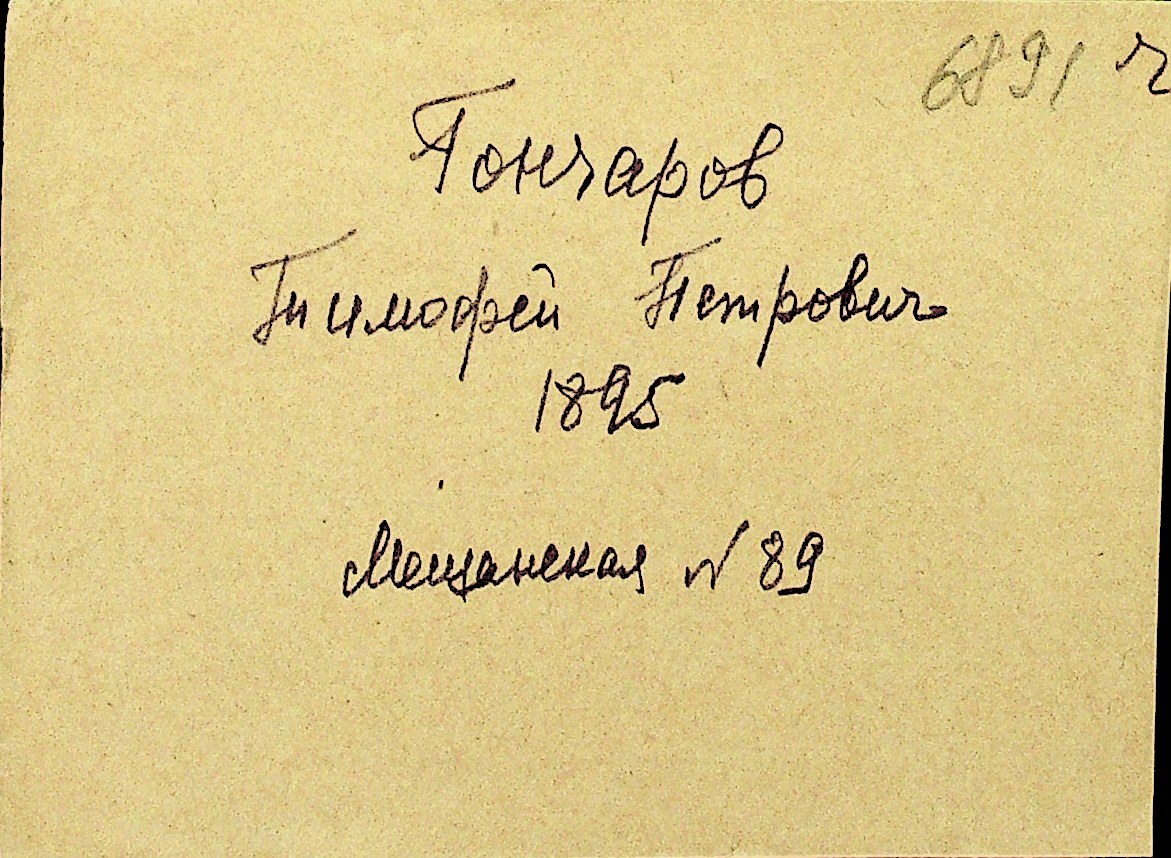 6891 ч
Гончаров
Тимофей Петрович
1895
Мещанская № 89